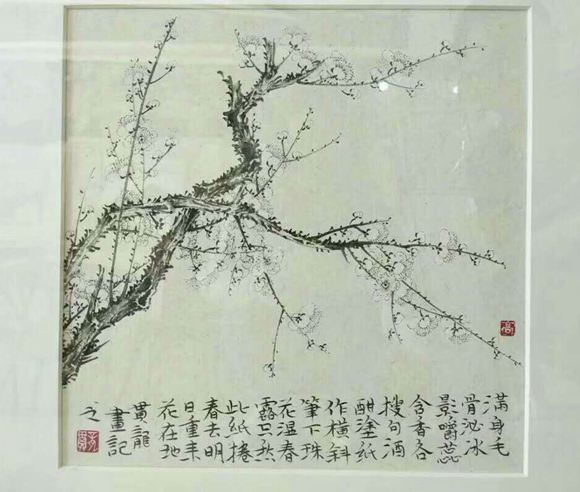 滿身毛
骨沁冰
影嚼蕊
含香各
搜句酒
酣塗紙
作橫斜
筆下珠
花湿春
露只愁
此紙捲
春去明
日重来
花在地
黄龍
畫記
之
高